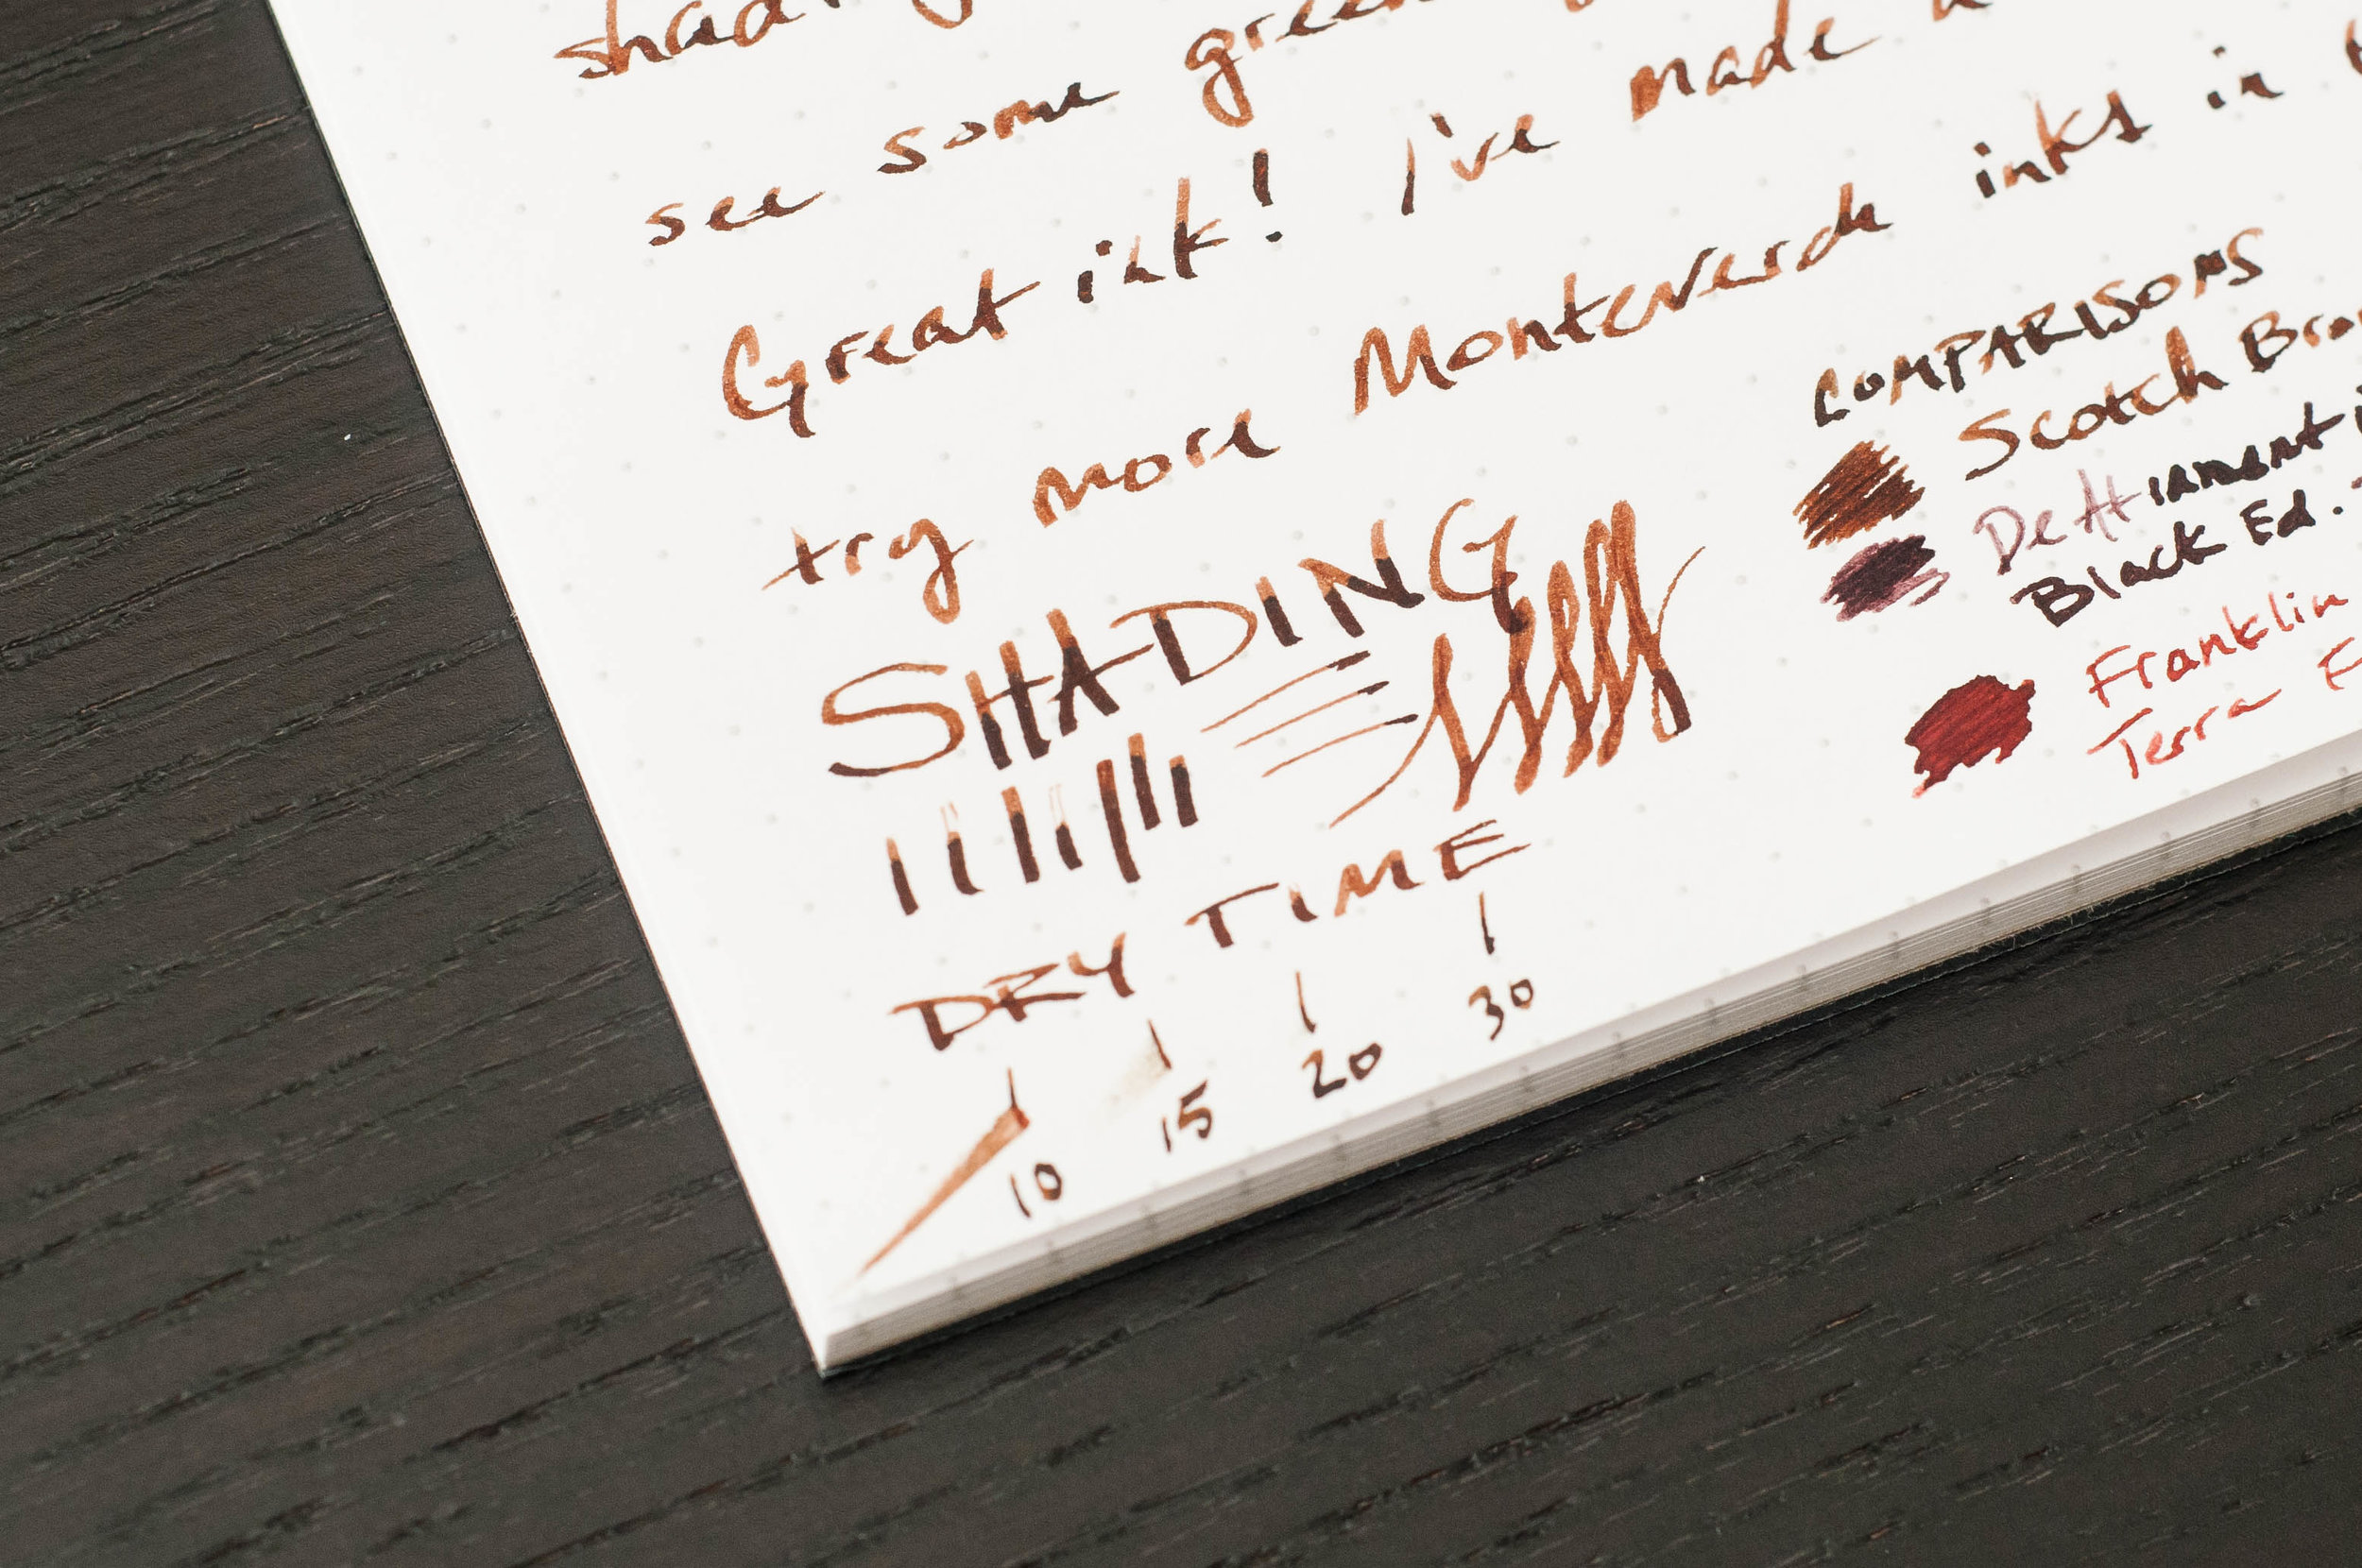 see some green
Great ink! I've made
try more Monteverde inks in
SHADING
DRY TIME
10 15 20 30
COMPARISONS
Scotch
DeAtramentis
Black Ed.
Franklin
Terra